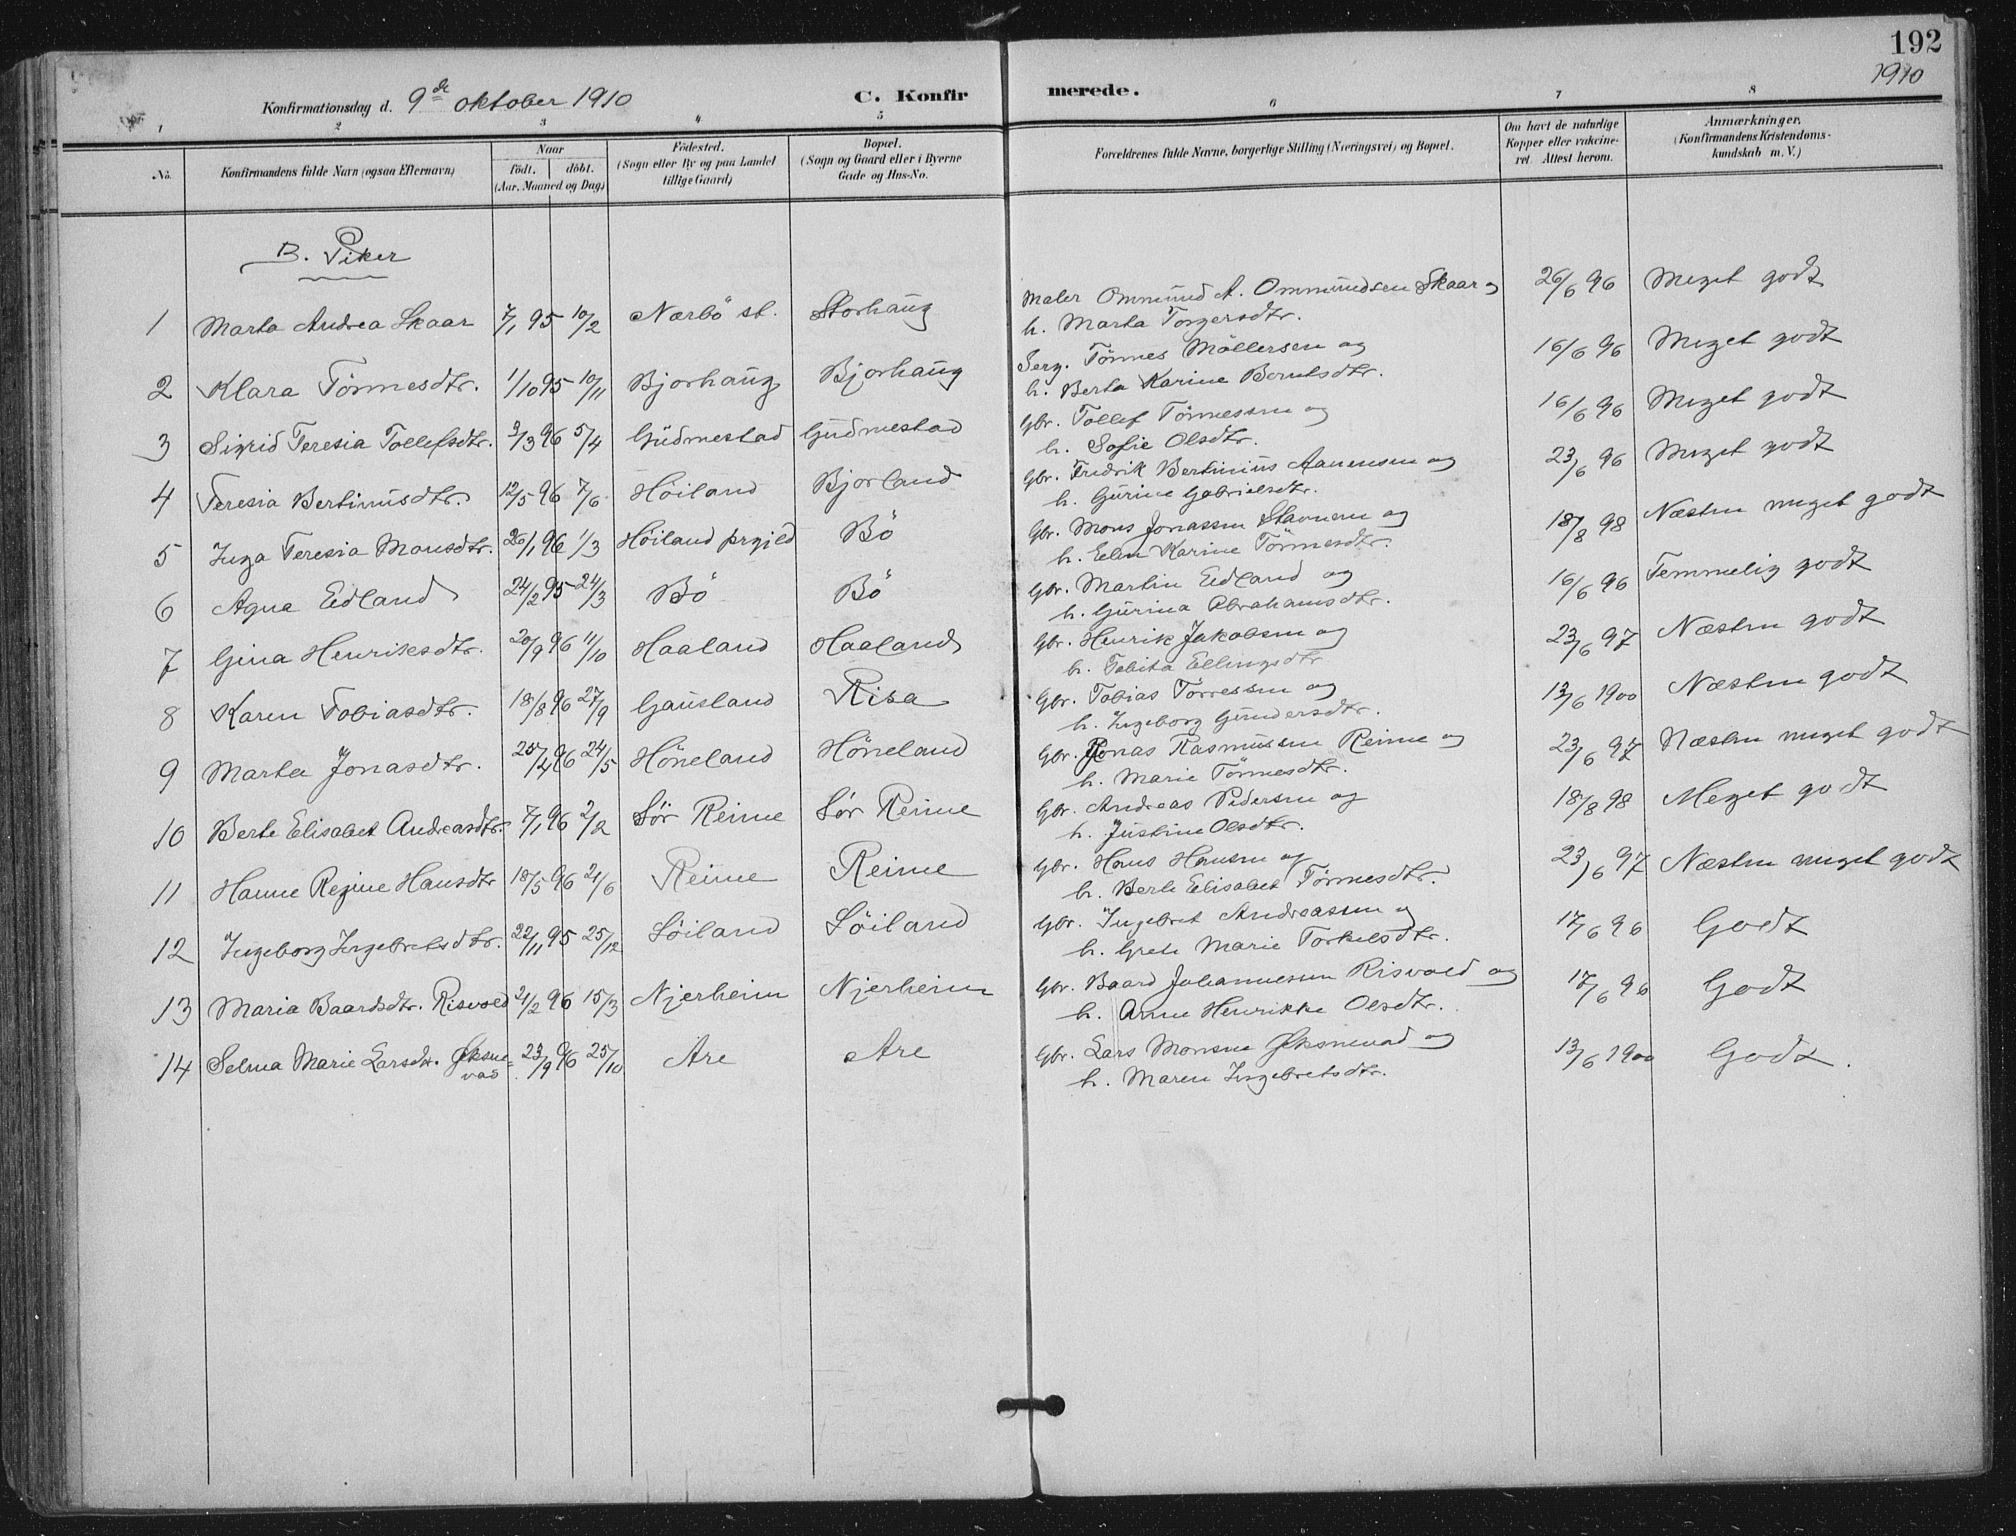 192
1910
Konfirmationsdag d. 9de oktober 1910
C. Konfirmerede.
1 2 3 4 5 6 7 8
No. Konfirmandens fulde Navn (ogsaa Efternavn) Naar födt. döbt. (Aar, Maaned og Dag) Födested. (Sogn eller By og paa Landet tillige Gaard) Bopæl. (Sogn og Gaard eller i Byerne Gade og Hus-No. Forældrenes fulde Navne, borgerlige Stilling (Næringsvei) og Bopæl. Om havt de naturlige Kopper eller vakcineret. Attest herom. Anmærkninger. (Konfirmandens Kristendomskundskab m. V.)
B. Piker
1 Marta Andrea Skaar 7/1 95 10/2 Nærbö st. Storhaug Maler Ommund A. Ommundsen Skaar og 26/6 96 Meget godt
h. Marta Torgersdtr.
2 Klara Tönnesdtr. 1/10 95 10/11 Bjorhaug Bjorhaug Serg. Tönnes Möllersen og 16/6 96 Meget godt
h. Berta Karine Berntsdtr.
3 Sigrid Teresia Tollefsdtr. 3/3 96 5/4 Gudmestad Gudmestad Gbr. Tollef Tönnessen og 16/6 96 Meget godt
h. Sofie Olsdtr.
4 Teresia Bertinusdtr. 12/5 96 7/6 Höiland Bjorland Gbr. Fredrik Bertinius Aanensen og 23/6 96 Meget godt
h. Gurine Gabrielsdtr.
5 Inga Teresia Monsdtr. 26/1 96 1/3 Höiland prgjld Bö Gbr. Mons Jonassen Stavnem og 18/8 98 Næsten meget godt
h. Elen Karine Tönnesdtr.
6 Agna Eidland 24/2 95 24/3 Bö Bö Gbr. Martin Eidland og 16/6 96 Temmelig godt
h. Gurina Abrahamsdtr.
7 Gina Henriksdtr. 20/9 96 11/10 Haaland Haaland Gbr. Henrik Jakobsen og 23/6 97 Næsten godt
h. Tabita Ellingsdtr
8 Karen Tobiasdtr. 18/8 96 27/9 Gausland Risa Gbr. Tobias Torressen og 13/6 1900 Næsten godt
h. Ingeborg Gundersdtr.
9 Marta Jonasdtr. 25/4 96 24/5 Höneland Höneland Gbr. Jonas Rasmussen Reime og 23/6 97 Næsten meget godt
h. Marie Tönnesdtr.
10 Berte Elisabet Andreasdtr. 7/1 96 2/2 Sör Reime Sör Reime Gbr. Andreas Pedersen og 18/8 98 Meget godt
h. Justine Olsdtr.
11 Hanne Regine Hansdtr 18/5 96 21/6 Reime Reime Gbr. Hans Hansen og 23/6 97 Næsten meget godt
h. Berte Elisabet Tönnesdtr.
12 Ingeborg Ingebretsdtr. 22/11 95 25/12 Söiland Söiland Gbr. Ingebret Andreassen og 17/6 96 Godt
h. Grete Marie Torkelsdtr.
13 Maria Baardsdtr. Risvold 21/2 96 15/3 Njerheim Njerheim Gbr. Baard Johannesen Risvold og 17/6 96 Godt
h. Anne Henrikke Olsdtr.
14 Selma Marie Larsdtr. Øksnevad 23/9 96 25/10 Are Are Gbr. Lars Monsen Øksnevad og 13/6 1900 Godt.
h. Maren Ingebretsdtr.